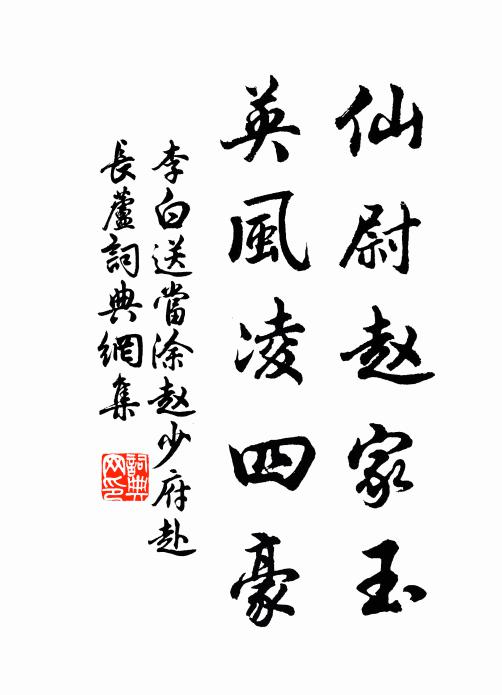 仙尉赵家玉
英風凌四豪
李白送當涂赵少府赴
長蘆詞典網集
詞典
网印